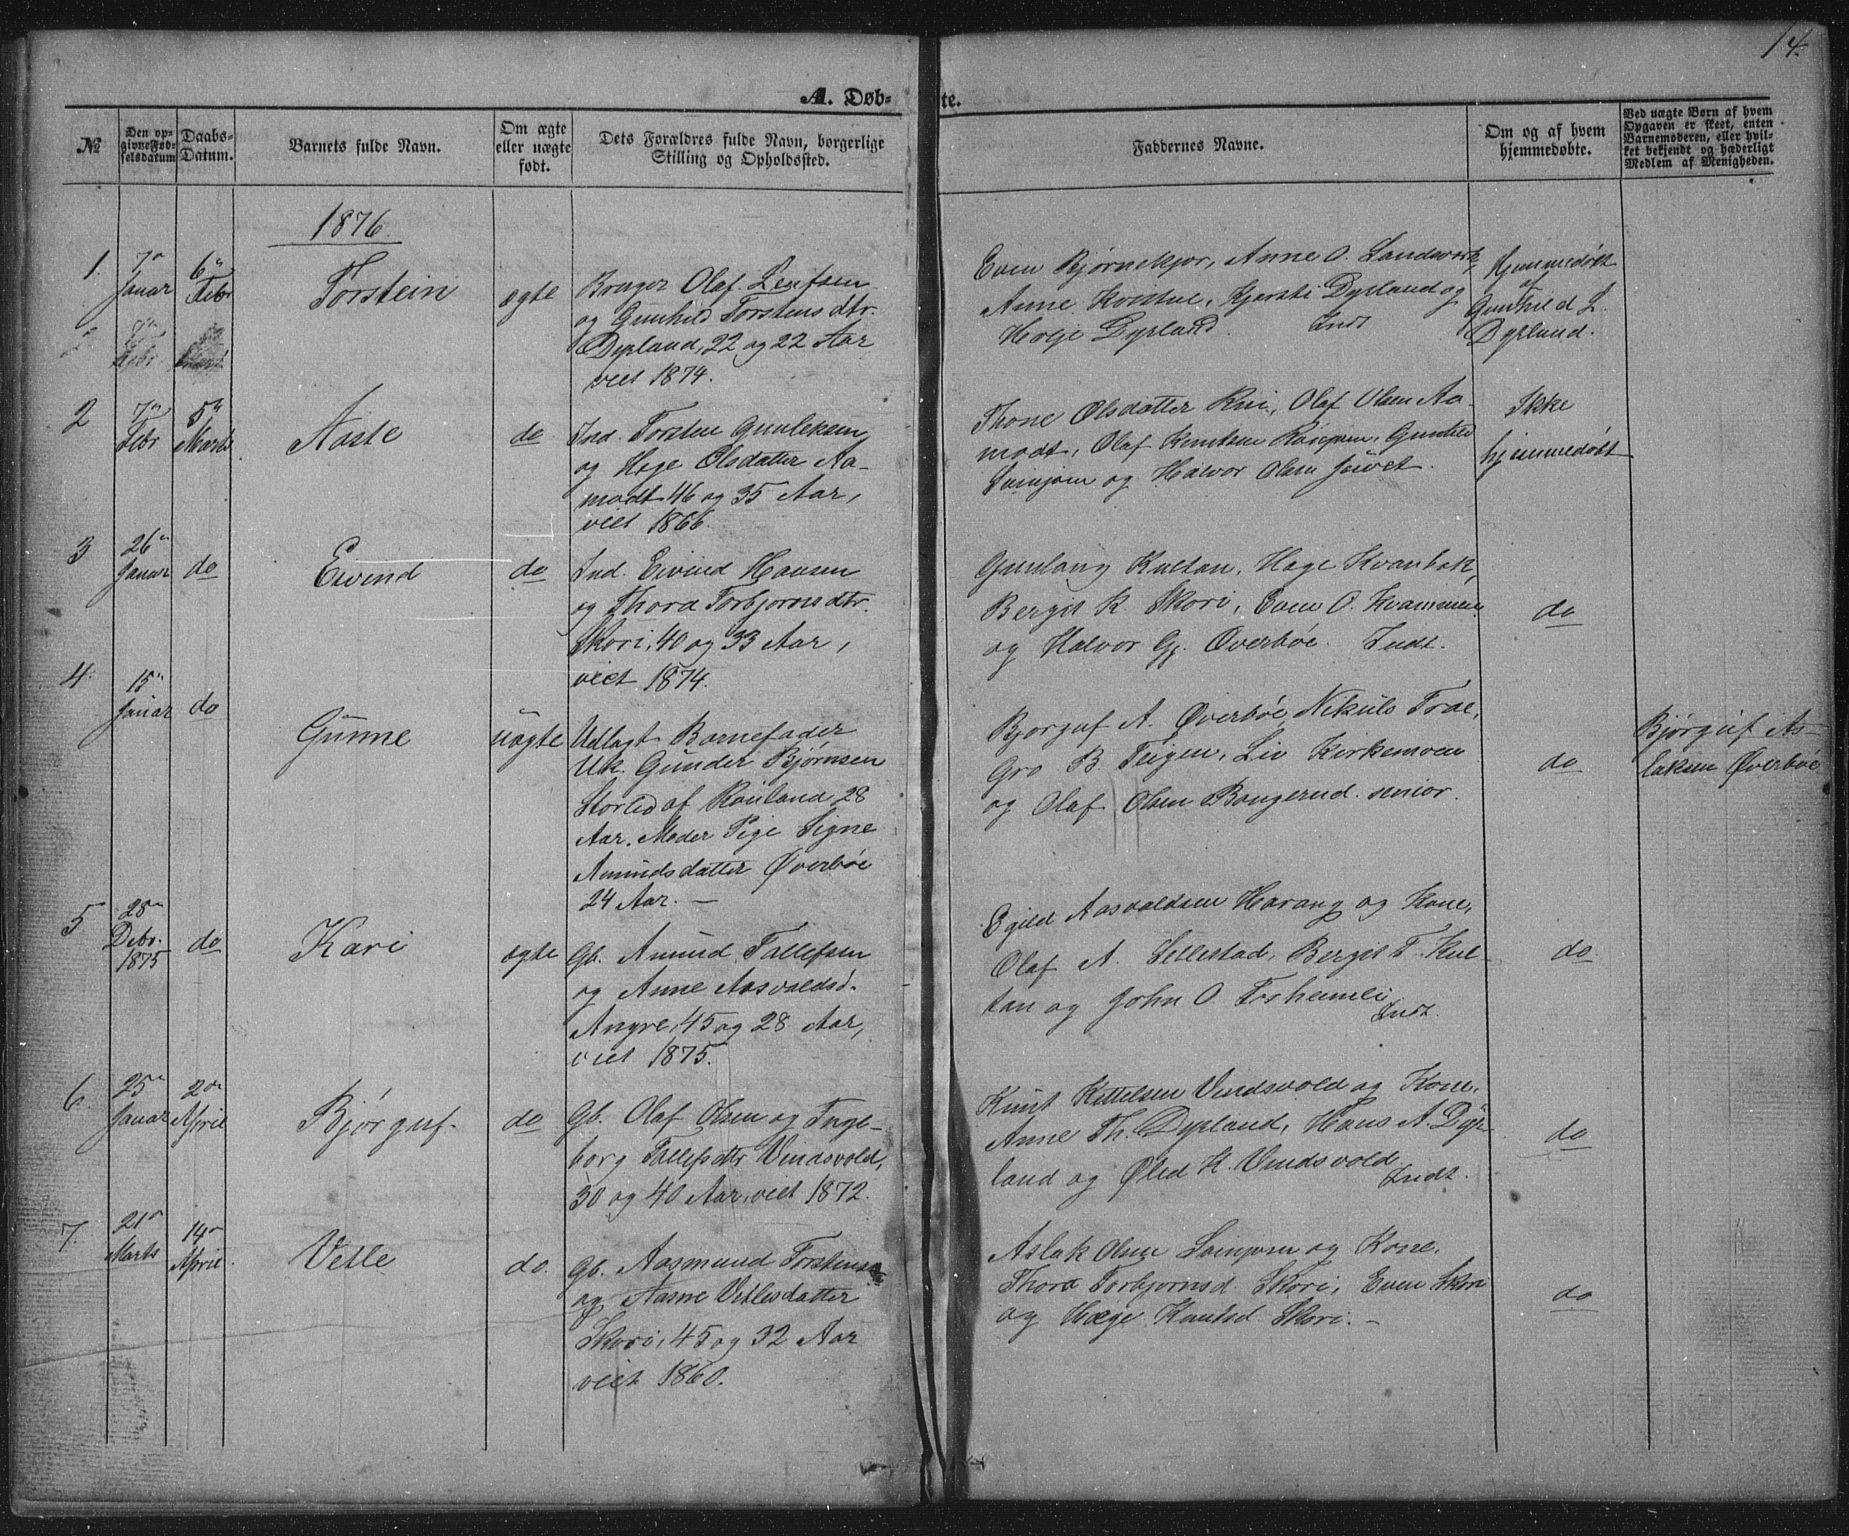 14.
A. Døb-
te.
No
Den op-
givne Fød-
selsdatum
Daabs-
Datum.
Barnets fulde Navn.
Om ægte
eller uægte
født.
Dets Forældres fulde Navn, borgerlige
Stilling og Opholdssted.
Faddernes Navne.
Om og af hvem
hjemmedøbte.
Ved uægte Børn af hvem
Opgaven er skeet, enten
Barnemoderen, eller hvil-
ket bekjendt og hæderligt
Medlem af Menigheden.
1876.
1.
7de
Januar
6te
Febr
Torstein
ægte
Bruger Olaf Leufsen
og Gunhild Torstensdtr.
Dyrland, 22 og 22 Aar
viet 1874.
Even Bjørnekjor, Anne O. Landsverk,
Anne Kvistue, Kjersti Dyrland og
Holje Dyrland. Indt
Hjemmedøbt
af
Gunhild L.
Dyrland.
7de
Febr
2
7de
Febr
5te
Marts
Aaste
do
Ind. Torsten Gunleksen
og Hæge Olsdatter Aa-
modt 46 og 35 Aar,
viet 1866.
Thone Olsdatter Olaf Olsen Aa-
modt, Olaf Knutsen Gunhild
og Halvor Olsen
Ikke
hjemmedøbt
3
26de
Januar
do
Eivind
do
Ind. Eivind Hansen
og Thora Torbjornsdtr.
Skori, 40 og 33 Aar,
viet 1874.
Gunlaug Kultan, Hæge Kvanbek,
Bergit K Skori, Even O. Kvammen
og Halvor Gj. Øverbøe. Indt.
do
4.
15de
Januar
do
Gunne
uægte
Udlagt Barnefader
Uk. Gunder Bjørnsen
Storlid af Rauland 28
Aar. Moder Pige Signe
Amundsdatter Øverbøe
24 Aar. —
Bjørguf A. Øverbøe, Nikuls Traae,
Gro B Teigen, Liv Kirkemoen
og Olaf Olsen Baugerud senior.
do
Bjørguf As-
laksen Øverbøe
5
28de
Debr.
1875
do
Kari
ægte
Gb. Amund Tallefsen
og Anne Aasvaldsd.
Angre, 45 og 28 Aar,
viet 1875.
Egild Aasvaldsen Harang og Kone,
Olaf A. Sellestad, Bergit T. Kul-
tan og John O. Forheimli
Indt.
do
6.
25de
Januar
2den
April
Bjørguf.
do
Gb. Olaf Olsen og Inge-
borg Tallefsdtr Vindsvold,
30 og 40 Aar, viet 1872.
Knut Kittelsen Vindsvold og Kone,
Anne Th. Dyrland, Hans A. Dyr-
land og Øled K. Vindsvold
Indt.
do
7.
21de
Marts
14de
April.
Vetle
do.
Gb. Aasmund Torstensen
og Aasne Vetlesdatter
Skori, 45 og 32 Aar
viet 1860.
Aslak Olsen og Kone,
Thora Torbjornsd. Skori, Even Skori
og Hæge Knutsd. Skori. —
do